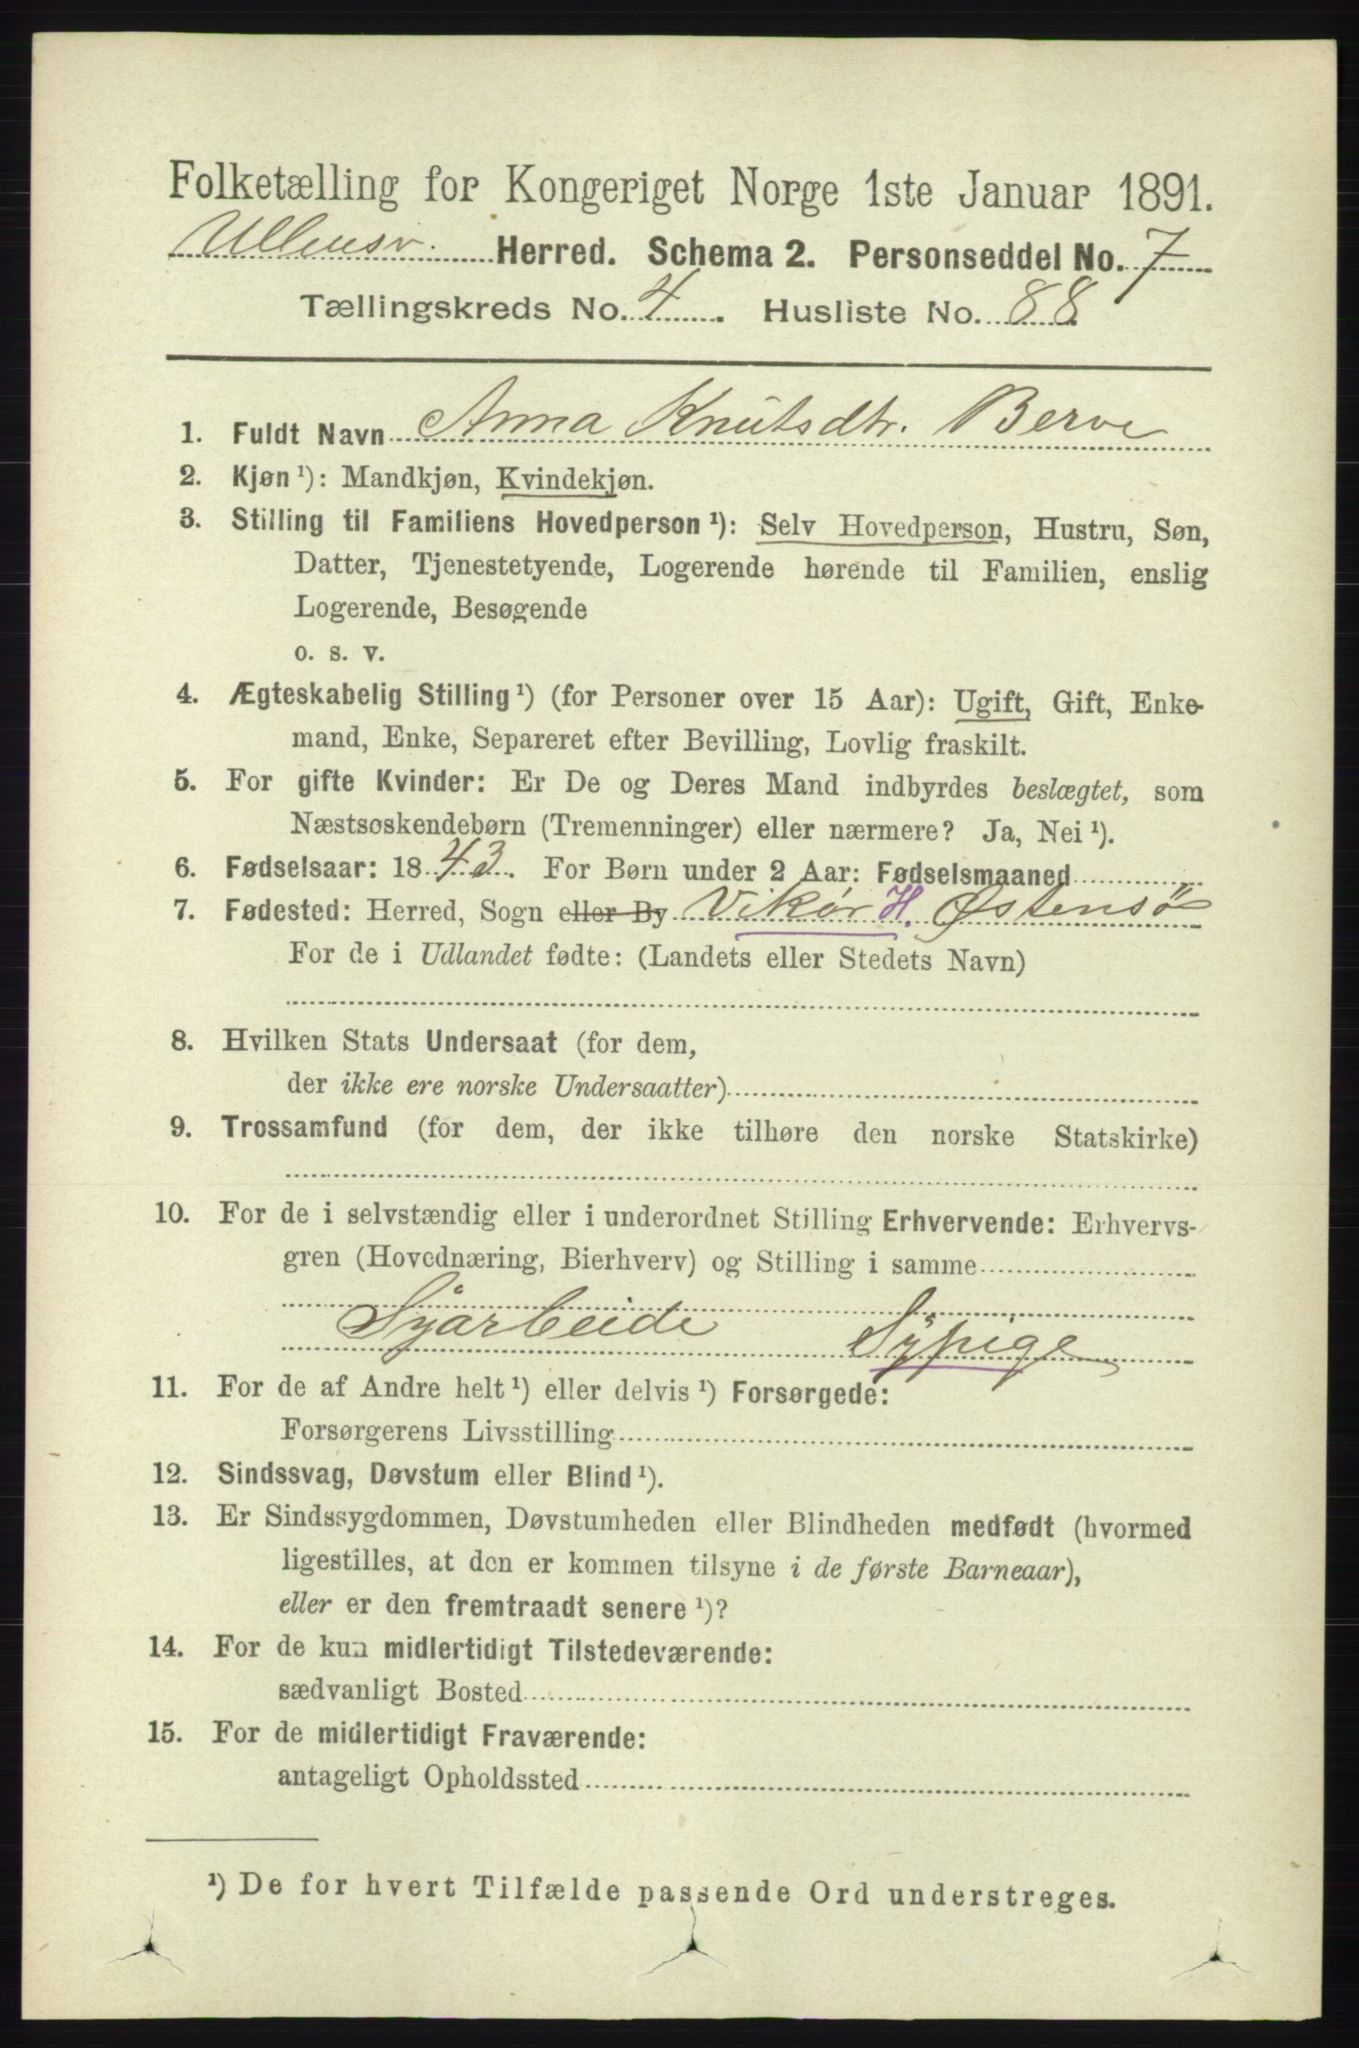 Folketælling for Kongeriget Norge 1ste Januar 1891.
Ullensv. Herred. Schema 2. Personseddel No. 7
Tællingskreds No. 4. Husliste No. 88
1. Fuldt Navn Anna Knutsdtr. Berve
2. Kjøn ¹): Mandkjøn, Kvindekjøn.
3. Stilling til Familiens Hovedperson ¹): Selv Hovedperson, Hustru, Søn,
Datter, Tjenestetyende, Logerende hørende til Familien, enslig
Logerende, Besøgende
o. s. v.
4. Ægteskabelig Stilling ¹) (for Personer over 15 Aar): Ugift, Gift, Enke-
mand, Enke, Separeret efter Bevilling, Lovlig fraskilt.
5. For gifte Kvinder: Er De og Deres Mand indbyrdes beslægtet, som
Næstsøskendebørn (Tremenninger) eller nærmere? Ja, Nei ¹).
6. Fødselsaar: 1843. For Børn under 2 Aar: Fødselsmaaned
7. Fødested: Herred, Sogn eller By Vikør H. Østensö
For de i Udlandet fødte: (Landets eller Stedets Navn)
8. Hvilken Stats Undersaat (for dem,
der ikke ere norske Undersaatter)
9. Trossamfund (for dem, der ikke tilhøre den norske Statskirke)
10. For de i selvstændig eller i underordnet Stilling Erhvervende: Erhvervs-
gren (Hovednæring, Bierhverv) og Stilling i samme
Syarbeide Sypige
11. For de af Andre helt ¹) eller delvis ¹) Forsørgede:
Forsørgerens Livsstilling
12. Sindssvag, Døvstum eller Blind ¹).
13. Er Sindssygdommen, Døvstumheden eller Blindheden medfødt (hvormed
ligestilles, at den er kommen tilsyne i de første Barneaar),
eller er den fremtraadt senere ¹)?
14. For de kun midlertidigt Tilstedeværende:
sædvanligt Bosted
15. For de midlertidigt Fraværende:
antageligt Opholdssted
¹) De for hvert Tilfælde passende Ord understreges.